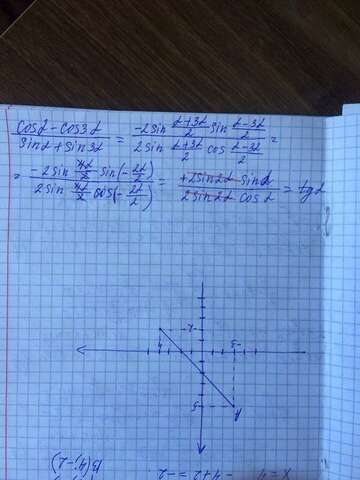 cosα - cos3α / sinα + sin3α = -2sin (α+3α)/2 sin (α-3α)/2 / 2sin (α+3α)/2 cos (α-3α)/2 =
= -2sin 4α/2 sin(-2α/2) / 2sin 4α/2 cos(-2α/2) = +2sin2α sinα / 2sin2α cosα = tgα
-2
4
-3
5
A
B(4;-2)
x=4 -4+2=-2